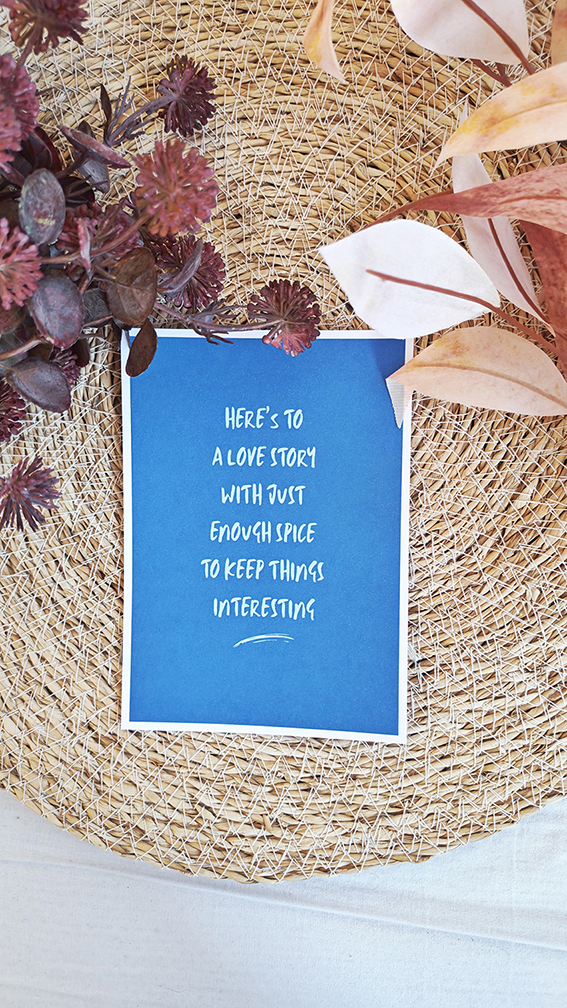 HERE'S TO
A LOVE STORY
WITH JUST
ENOUGH SPICE
TO KEEP THINGS
INTERESTING